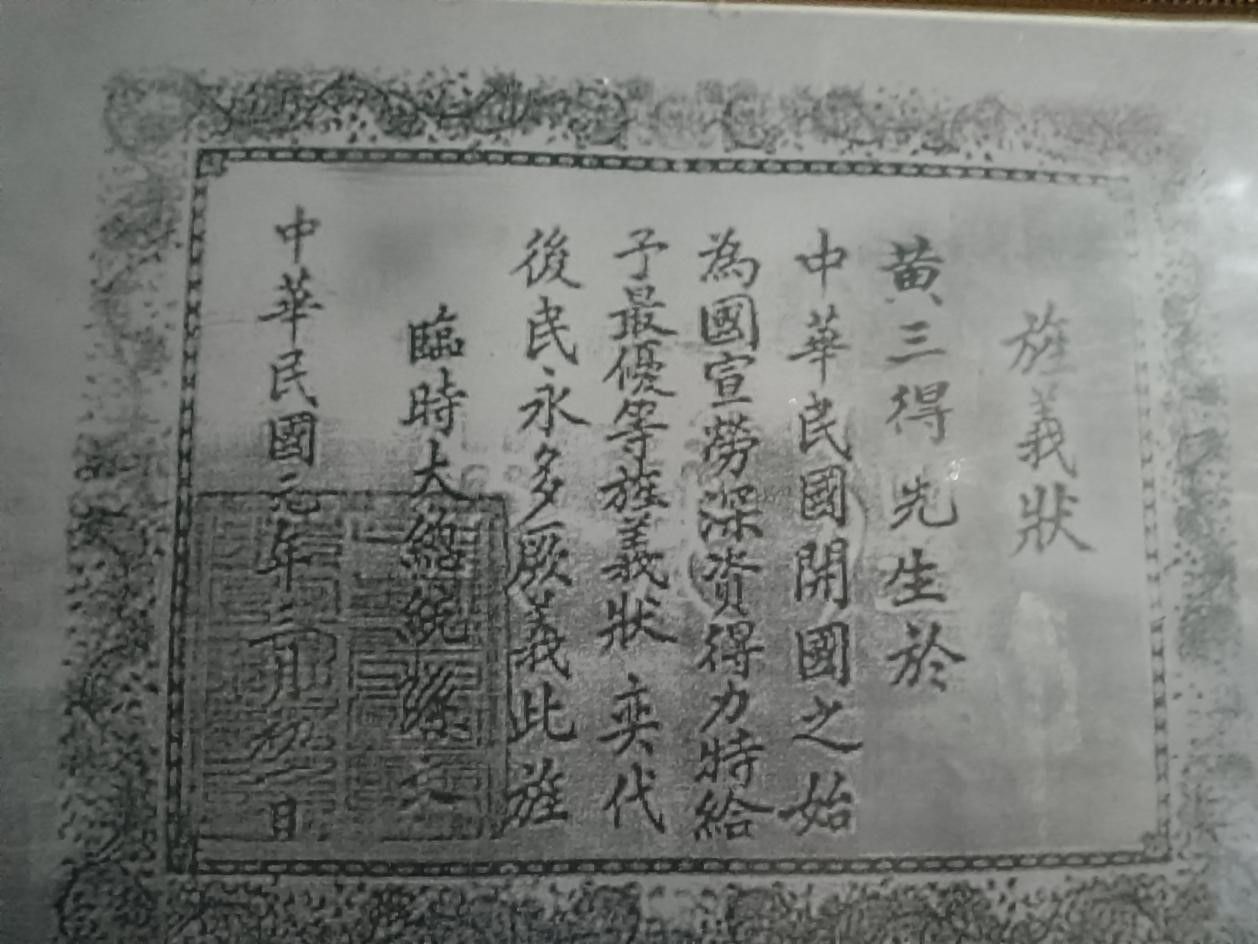 旌義狀
黃三得先生於
中華民國開國之始
為國宣勞深資得力特給
予最優等旌義狀 奕代
後民永多厥義此旌
臨時大總統孫文
中華民國元年三月初 日